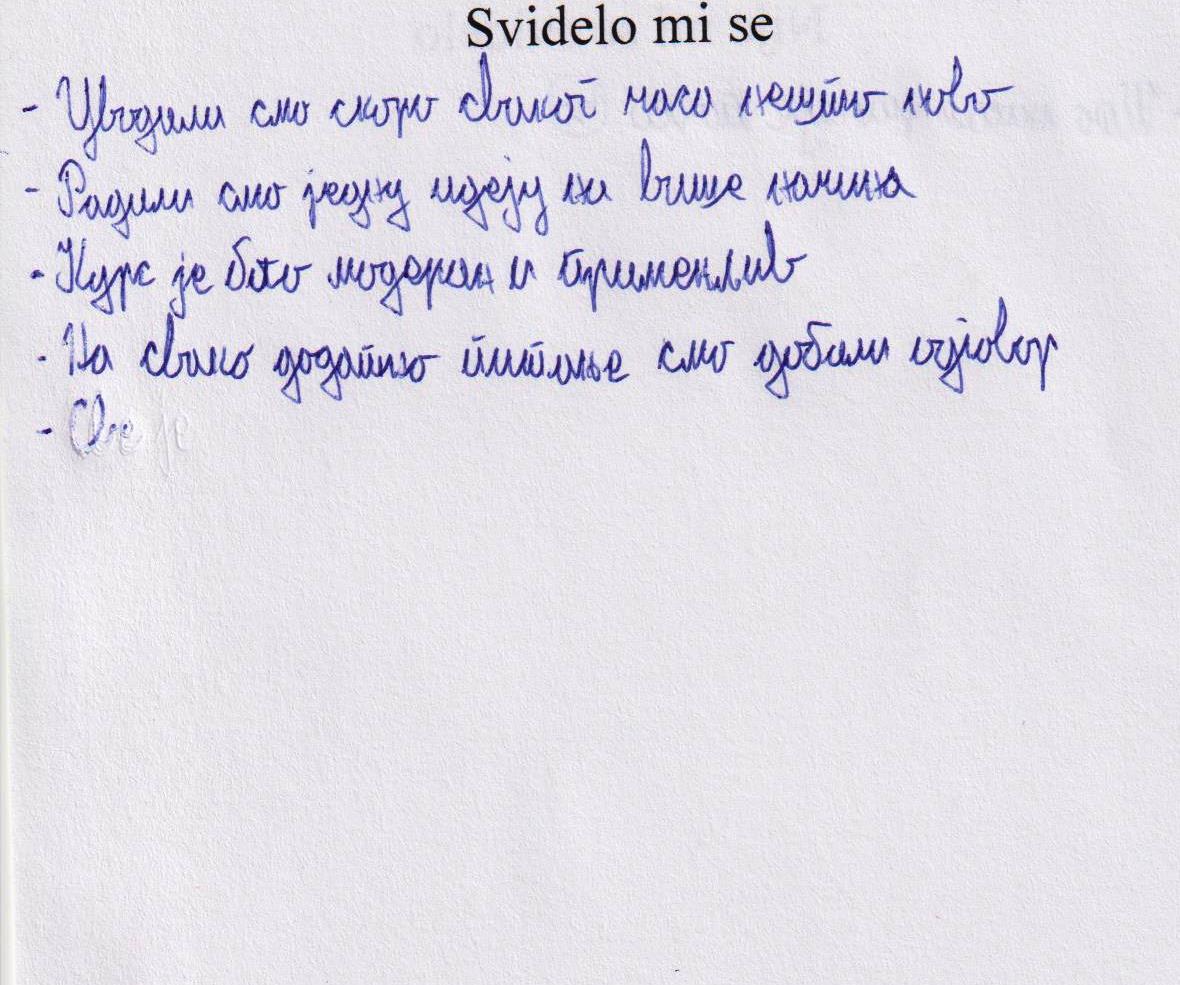 Svidelo mi se
- Уводили смо скоро сваког часа нешто ново
- Радили смо једну идеју на више начина
- Курс је био модеран и применљив
- На свако додатно питање смо добили одговор
- Све је